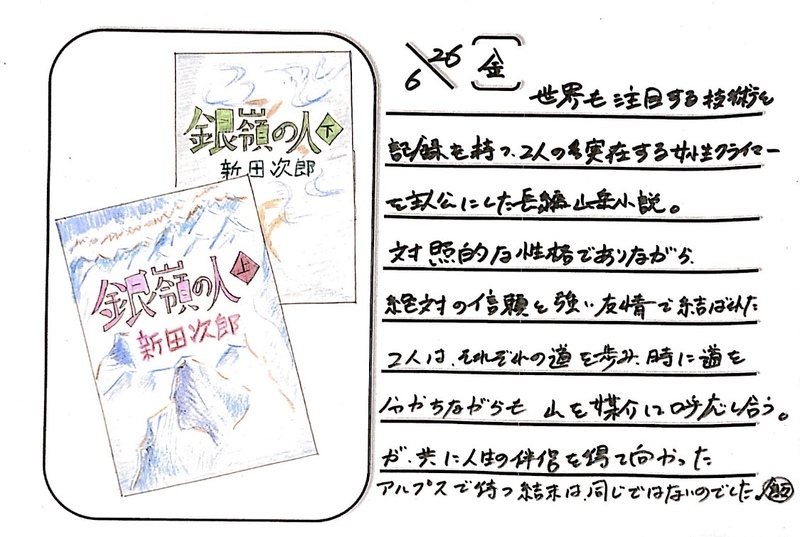 銀嶺の人 下
新田次郎
銀嶺の人 上
新田次郎
6/26 金
世界も注目する技術と
記録を持つ、2人の実在する女性クライマー
を主人公にした長編山岳小説。
対照的な性格でありながら、
絶対の信頼と強い友情で結ばれた
2人は、それぞれの道を歩み、時に道を
分かちながらも 山を媒介に呼応し合う。
が、共に人生の伴侶を得て向かった
アルプスで待つ結末は、同じではないのでした。